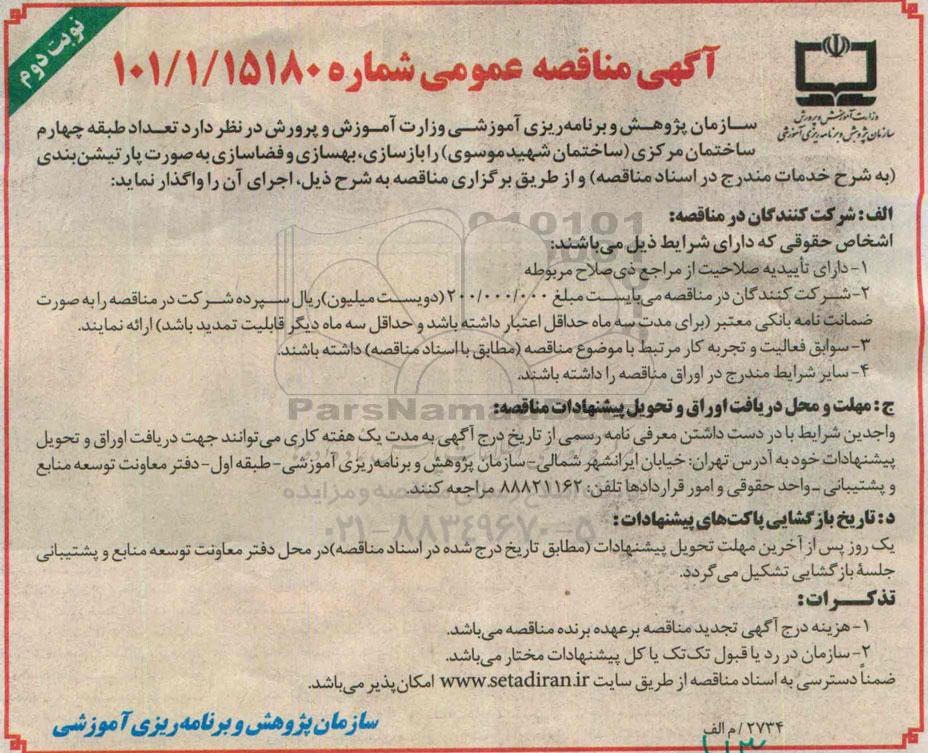 نوبت دوم
آگهی مناقصه عمومی شماره ۱۰۱/۱/۱۵۱۸۰
وزارت آموزش و پرورش
سازمان پژوهش و برنامه‌ریزی آموزشی
سازمان پژوهش و برنامه‌ریزی آموزشی وزارت آموزش و پرورش در نظر دارد تعداد طبقه چهارم
ساختمان مرکزی (ساختمان شهید موسوی) را بازسازی، بهسازی و فضاسازی به صورت پارتیشن‌بندی
(به شرح خدمات مندرج در اسناد مناقصه) و از طریق برگزاری مناقصه به شرح ذیل، اجرای آن را واگذار نماید:
الف: شرکت کنندگان در مناقصه:
اشخاص حقوقی که دارای شرایط ذیل می‌باشند:
۱- دارای تأییدیه صلاحیت از مراجع ذی‌صلاح مربوطه
۲- شرکت کنندگان در مناقصه می‌بایست مبلغ ۲۰۰/۰۰۰/۰۰۰ (دویست میلیون) ریال سپرده شرکت در مناقصه را به صورت
ضمانت نامه بانکی معتبر (برای مدت سه ماه حداقل اعتبار داشته باشد و حداقل سه ماه دیگر قابلیت تمدید باشد) ارائه نمایند.
۳- سوابق فعالیت و تجربه کار مرتبط با موضوع مناقصه (مطابق با اسناد مناقصه) داشته باشند.
۴- سایر شرایط مندرج در اوراق مناقصه را داشته باشند.
ج: مهلت و محل دریافت اوراق و تحویل پیشنهادات مناقصه:
واجدین شرایط با در دست داشتن معرفی نامه رسمی از تاریخ درج آگهی به مدت یک هفته کاری می‌توانند جهت دریافت اوراق و تحویل
پیشنهادات خود به آدرس تهران: خیابان ایرانشهر شمالی- سازمان پژوهش و برنامه‌ریزی آموزشی- طبقه اول- دفتر معاونت توسعه منابع
و پشتیبانی -واحد حقوقی و امور قراردادها تلفن: ۸۸۸۲۱۱۶۲ مراجعه کنند.
د: تاریخ بازگشایی پاکت‌های پیشنهادات:
یک روز پس از آخرین مهلت تحویل پیشنهادات (مطابق تاریخ درج شده در اسناد مناقصه) در محل دفتر معاونت توسعه منابع و پشتیبانی
جلسهٔ بازگشایی تشکیل می‌گردد.
تذکرات:
۱- هزینه درج آگهی تجدید مناقصه برعهده برنده مناقصه می‌باشد.
۲- سازمان در رد یا قبول تک‌تک یا کل پیشنهادات مختار می‌باشد.
ضمناً دسترسی به اسناد مناقصه از طریق سایت www.setadiran.ir امکان‌پذیر می‌باشد.
۲۷۳۴/م الف
سازمان پژوهش و برنامه ریزی آموزشی
ParsNamad
۰۲۱-۸۸۳۴۹۶۷۰-۵